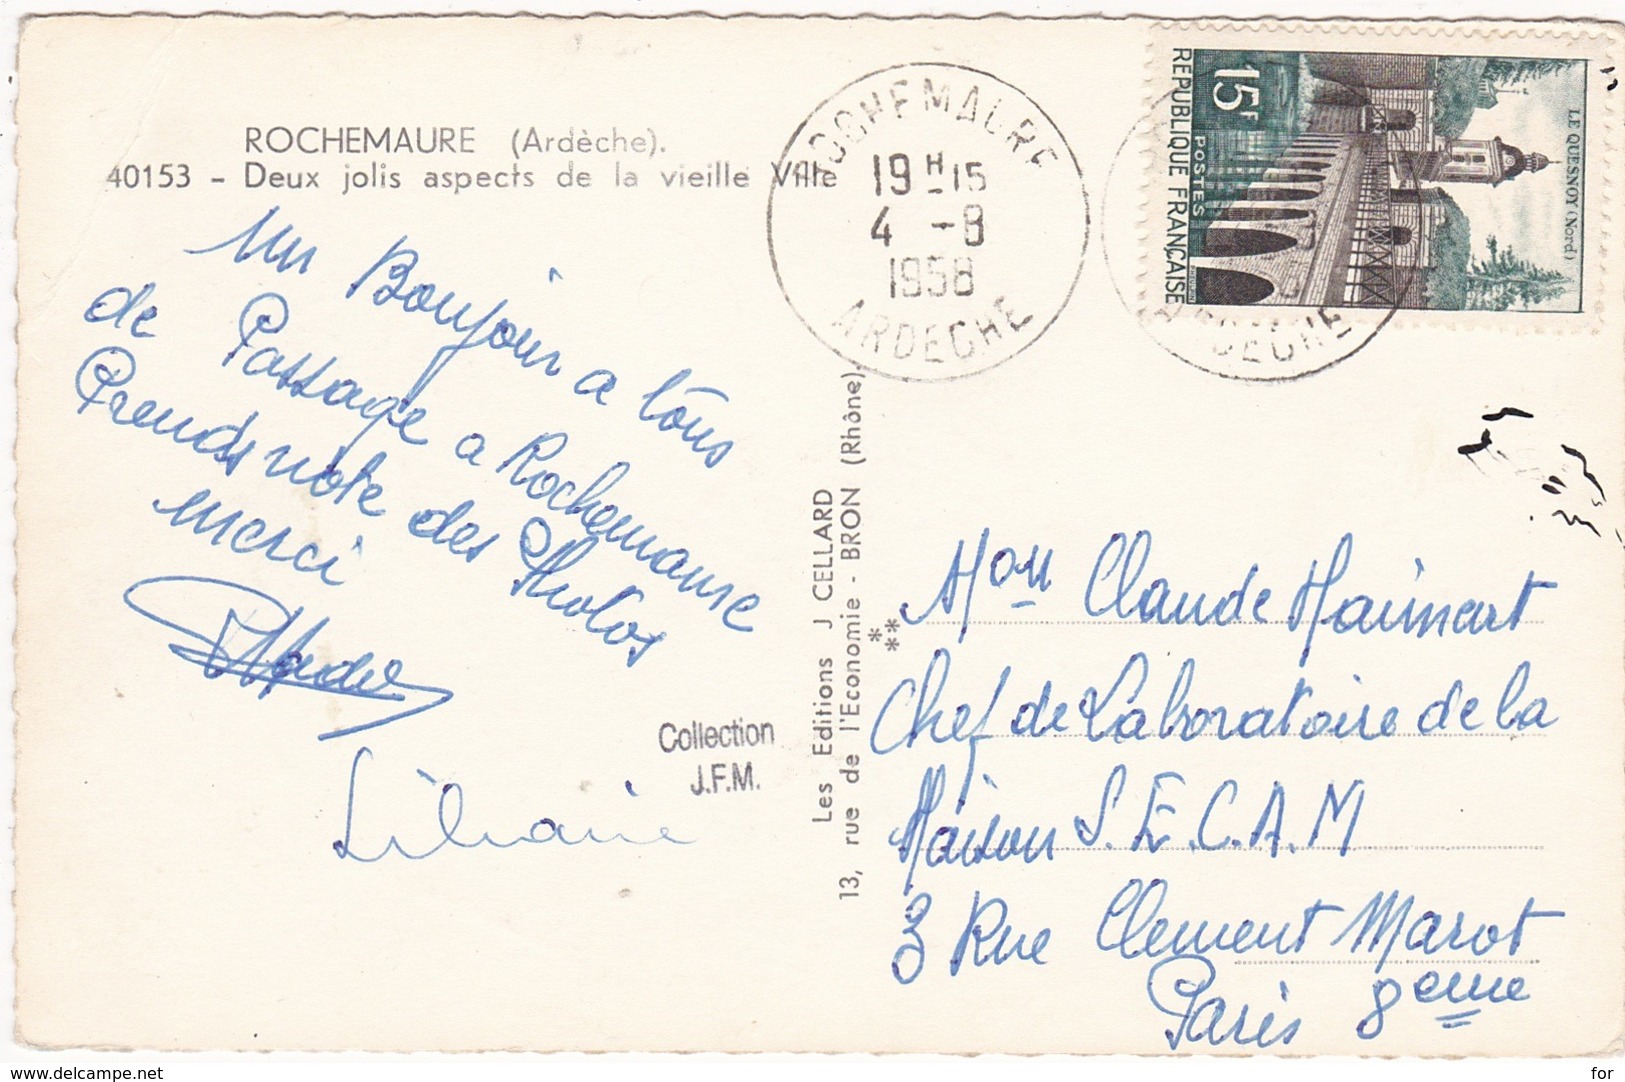 ROCHEMAURE (Ardèche).
40153 - Deux jolis aspects de la vieille Ville
Un Boujour a tous
de Passage a Rochemaure
Prends note des Photos
merci
Liliane
Collection
J.F.M.
ROCHEMAURE
19 H 15
4 - 8
1958
ARDECHE
ARDECHE
15F
POSTES
REPUBLIQUE FRANÇAISE
LE QUESNOY (Nord)
Les Editions J CELLARD
13, rue de l'Economie - BRON (Rhône).
***
Mon Claude Haimart
Chef de Laboratoire de la
Maison S.E.C.A.M
3 Rue Clement Marot
Paris 8eme
www.delcampe.net
for